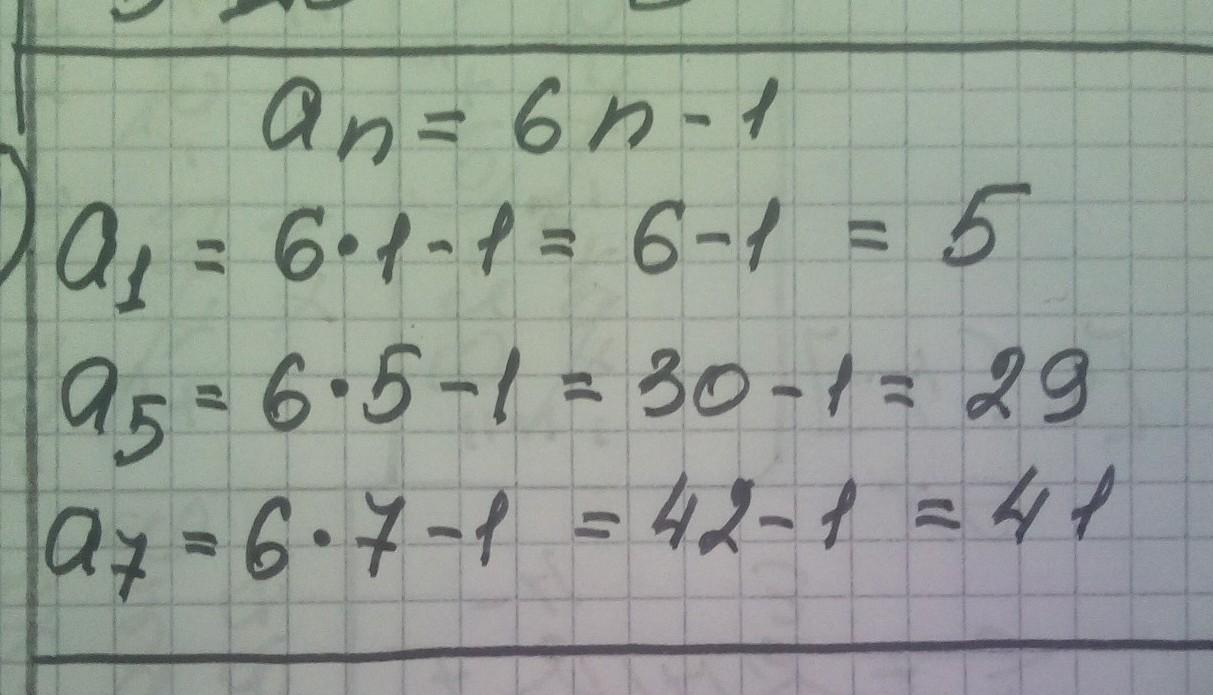 aₙ = 6n - 1
a₁ = 6·1 - 1 = 6 - 1 = 5
a₅ = 6·5 - 1 = 30 - 1 = 29
a₇ = 6·7 - 1 = 42 - 1 = 41